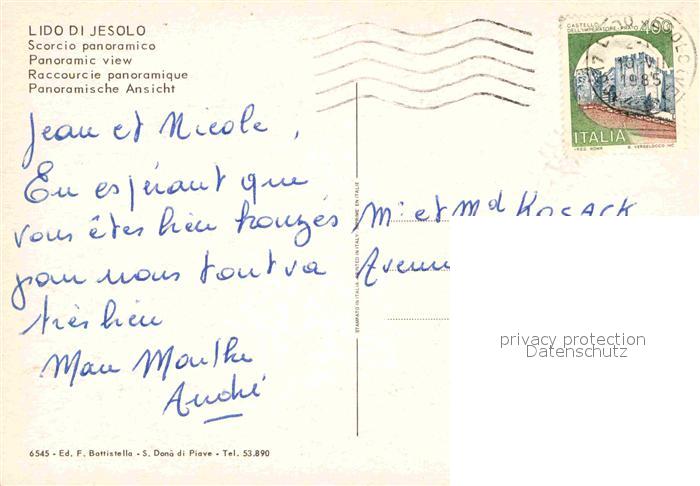 LIDO DI JESOLO
Scorcio panoramico
Panoramic view
Raccourcie panoramique
Panoramische Ansicht
CASTELLO
DELL'IMPERATORE - PRATO 400
10 VII
1985
ITALIA
Jean et Nicole,
En espérant que
vous êtes bien
pour nous tout va
très bien
André
Mr et Md Kosack
Avenu
STAMPATO IN ITALIA PRINTED IN ITALY IMPRIME EN ITALIE
privacy protection
Datenschutz
6545 - Ed. F. Battistella - S. Donà di Piave - Tel. 53.890